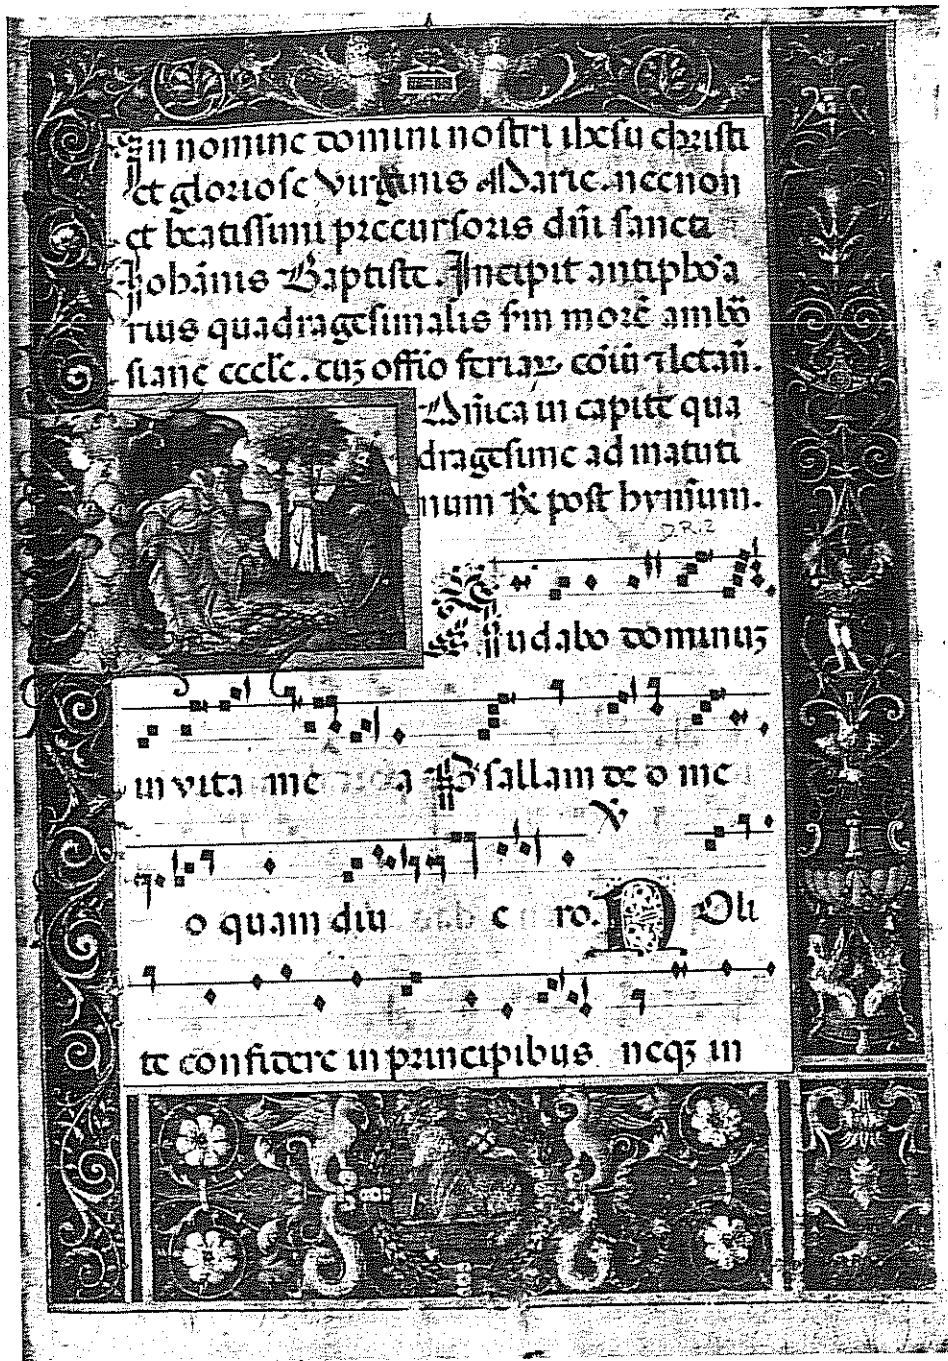 In nomine domini nostri ihesu christi
et gloriose virginis Marie. necnon
et beatissimi precursoris dnĩ sancti
Iohãnis Baptiste. Incipit antiphõa
rius quadragesimalis sᷤm morẽ ambro
siane eccl'e. cuz offĩo feriaꝝ coĩuz ⁊ letañ.
Dñica in capite qua
dragesime ad matuti
num ℟ post hymnum.
D.R.2
Laudabo dominuz
in vita me a Psallam deo me
o quam diu e ro. ℣ Noli
te confidere in principibus neqꝫ in